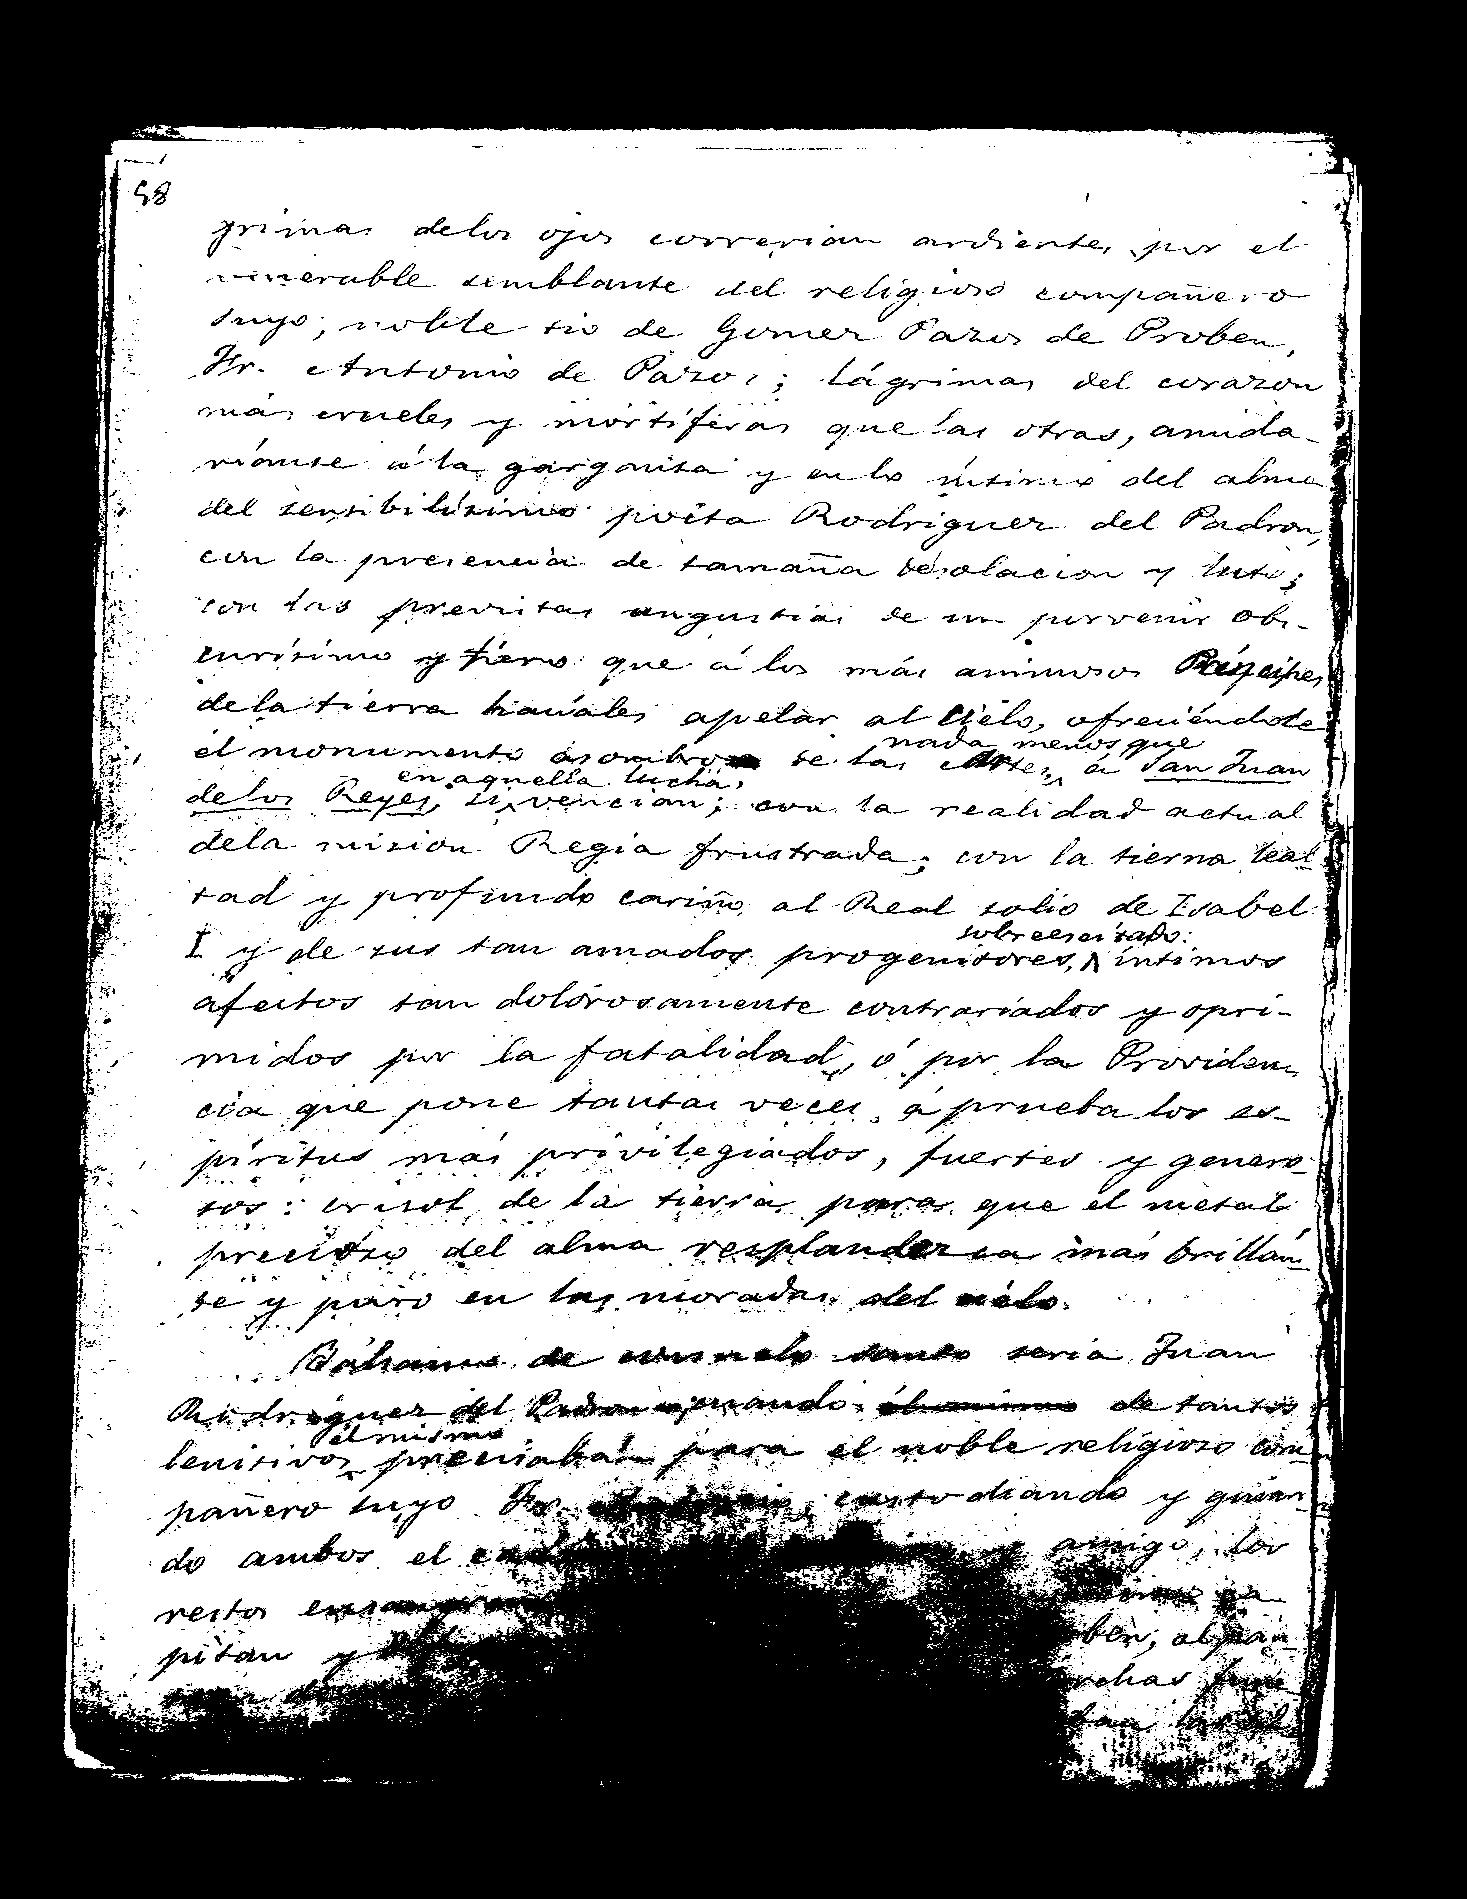 58
grimas delos ojos correrian ardientes por el
venerable semblante del religioso compañero
suyo, noble tio de Gomez Pazos de Proben,
Fr. Antonio de Pazos; lágrimas del corazon
más crueles y mortíferas que las otras, anida-
ríanse á la garganta y en lo íntimo del alma
del sensibilísimo poéta Rodriguez del Padron,
con la presencia de tamaña desolacion y luto;
con las previstas angustias de un porvenir obs-
curísimo y fiero que á los más animosos Príncipes
dela tierra haríales apelar al Cielo, ofreciéndole
nada menos que
el monumento asombro de las Artes, á San Juan
en aquella lucha,
delos Reyes, si vencian; con la realidad actual
dela mision Regia frustrada; con la tierna leal
tad y profundo cariño al Real solio de Isabel
sobreescitado:
I y de sus tan amados progenitores, íntimos
afectos tan dolorosamente contrariados y opri-
midos por la fatalidad, ó por la Providen-
cia que pone tantas veces á prueba los es-
píritus más privilegiados, fuertes y genero-
sos: crisol de la tierra para que el metal
precioso del alma resplandezca más brillan-
te y puro en las moradas del cielo.
Bálsamo de consuelo santo seria Juan
Rodriguez del Padron cuando de tantos
él mismo
lenitivos precisaba para el noble religioso com-
pañero suyo Fr. custodiando y guian-
do ambos el amigo, los
restos
pitan y ben, al pan-
rchas fune